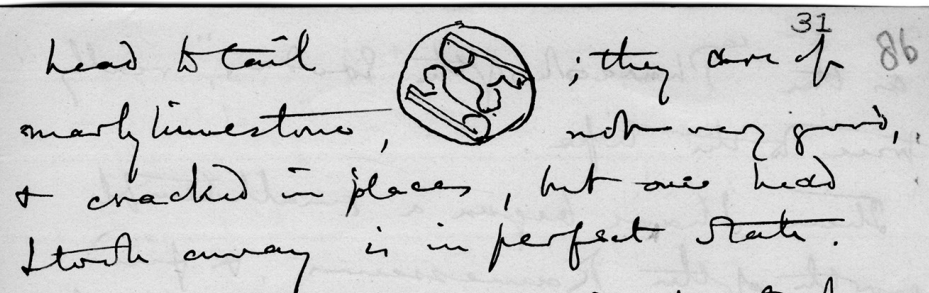 31
head to tail ; they are of
marly limestone, not very good,
+ cracked in places, but one head
I took away is in perfect state.